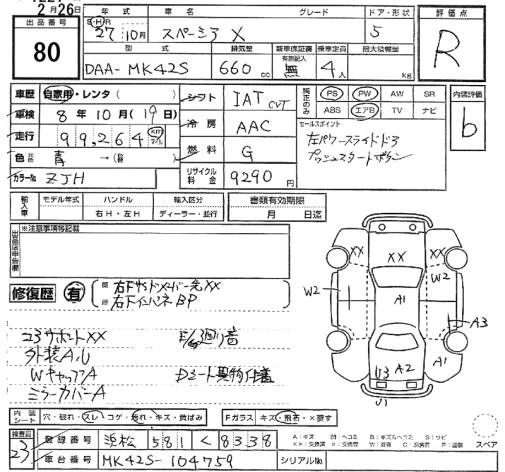 2月26日
出品番号 80
年式 車名 グレード ドア・形状 評価点
S・H・R 27年10月 スペーシア X 5 R
型式 排気量 新車保証書 乗車定員 最大積載量
DAA-MK42S 660cc 有 別記入 無 4人 kg
車歴 自家用・レンタ( ) シフト IAT CVT
純正のみ PS PW AW SR 内装評価
ABS エアB TV ナビ b
車検 8年10月(19日) 冷房 AAC
セールスポイント
走行 99,264 km マイル 燃料 G
左パワースライドドア
プッシュスタートボタン
色 青 →( )
カラーNo ZJH リサイクル料金 9290円
輸入車 モデル年式 ハンドル 輸入区分 書類有効期限
年 右H・左H ディーラー・並行 月 日迄
※注意事項等記載
修復歴 有
右Fサイドメンバー先XX
右FインパネBP
コアサポートXX F/G廻り音
外装A,U
WキャップA Dシート異物付着
ミラーカバーA
XX XX XX
W2 W2
A1
A3
U3 A2 A1
U1
内装シート 穴・破れ・スレ・コゲ・汚れ・キズ・黄ばみ Fガラス キズ・飛石・×要す
検査員 23
登録番号 浜松 581 く 8338
車台番号 MK42S-104759 シリアルNo.
スペア